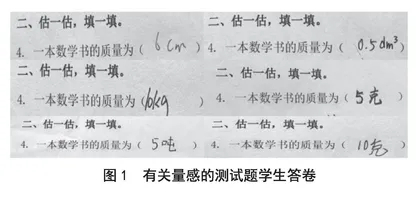 二、估一估，填一填。
4. 一本数学书的质量为（ 6cm ）
二、估一估，填一填。
4. 一本数学书的质量为（ 0.5dm³ ）
二、估一估，填一填。
4. 一本数学书的质量为（ 10kg ）
二、估一估，填一填。
4. 一本数学书的质量为（ 5克 ）
二、估一估，填一填。
4. 一本数学书的质量为（ 5吨 ）
二、估一估，填一填。
4. 一本数学书的质量为（ 10克 ）
图1 有关量感的测试题学生答卷